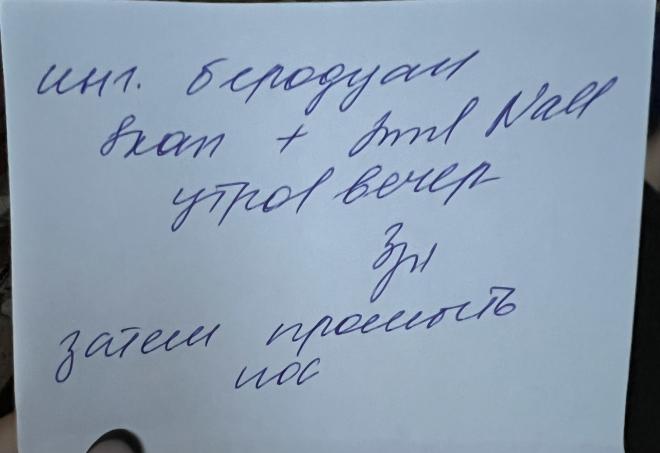 инг. беродуал
8кап + 3ml NaCl
утро/вечер
3дн
затем промыть
нос